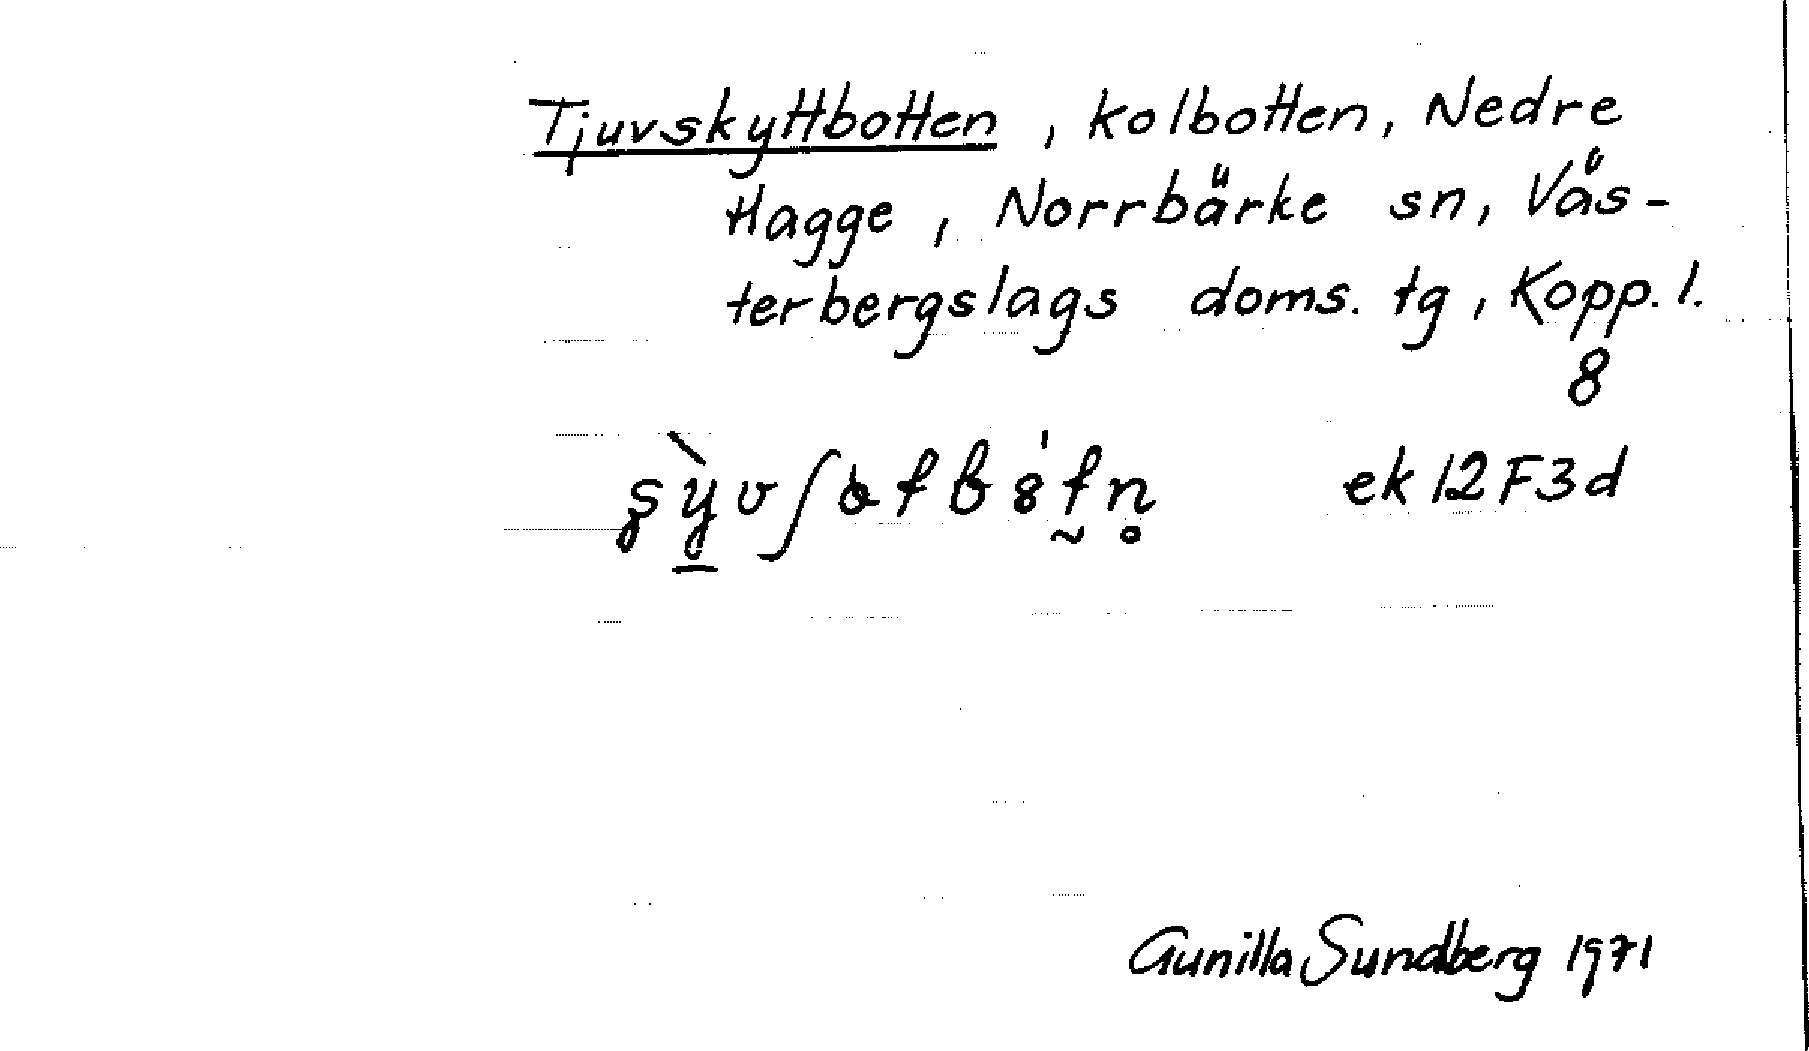 Tjuvskyttbotten, kolbotten, Nedre
Hagge, Norrbärke sn, Väs-
terbergslags doms. tg, Kopp. l.
8
ek 12F3d
Gunilla Sundberg 1971